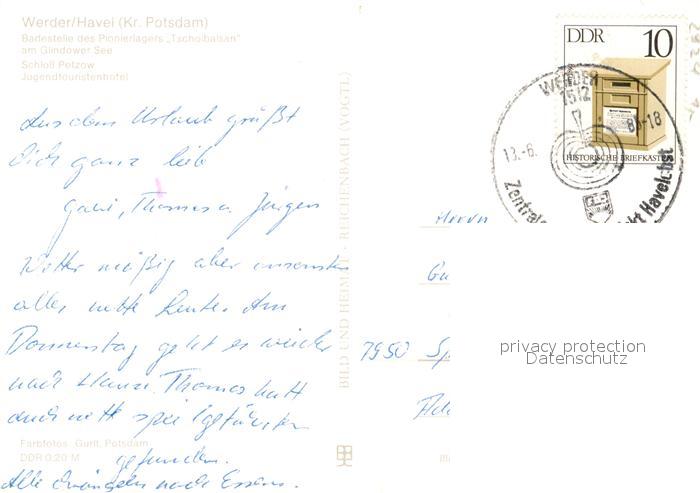 Werder/Havel (Kr. Potsdam)
Badestelle des Pionierlagers „Tschoibalsan"
am Glindower See
Schloß Petzow
Jugendtouristenhotel
Aus dem Urlaub grüßt
dich ganz lieb
Gabi, Thomas u. Jürgen
Wetter mäßig aber ansonsten
alles nette Leute. Am
Donnerstag geht es wieder
nach Hause. Thomas hat
auch nette Spielgefährten
gefunden.
Alle drängeln nach Essen.
Farbfotos: Gurlt, Potsdam
DDR 0,20 M
BILD UND HEIMAT · REICHENBACH (VOGTL)
DDR 10
HISTORISCHE BRIEFKÄSTEN
WERDER
1512
13.-6. 18
Havelobst
Herrn
7950
privacy protection
Datenschutz